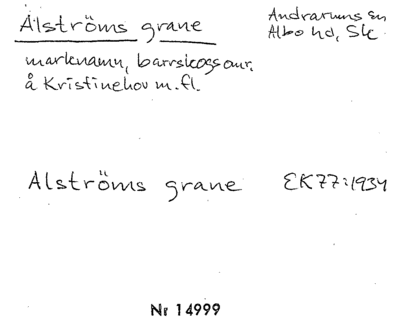 Alströms grane
Andrarums sn
Albo hd, Sk
marknamn, barrskogsomr.
å Kristinehov m.fl.
Alströms grane EK77:1934
Nr 14999